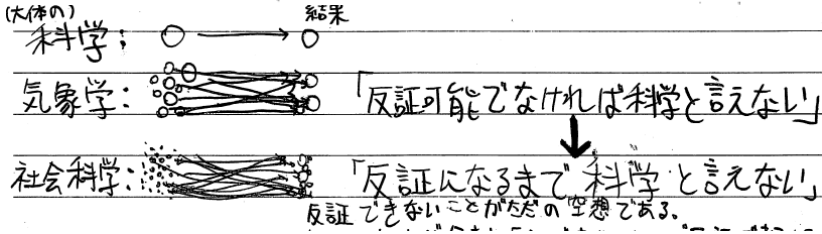 (大体の)
科学: 結果
気象学: 「反証可能でなければ科学と言えない」
社会科学: 「反証になるまで"科学"と言えない」
反証できないことがただの空想である。